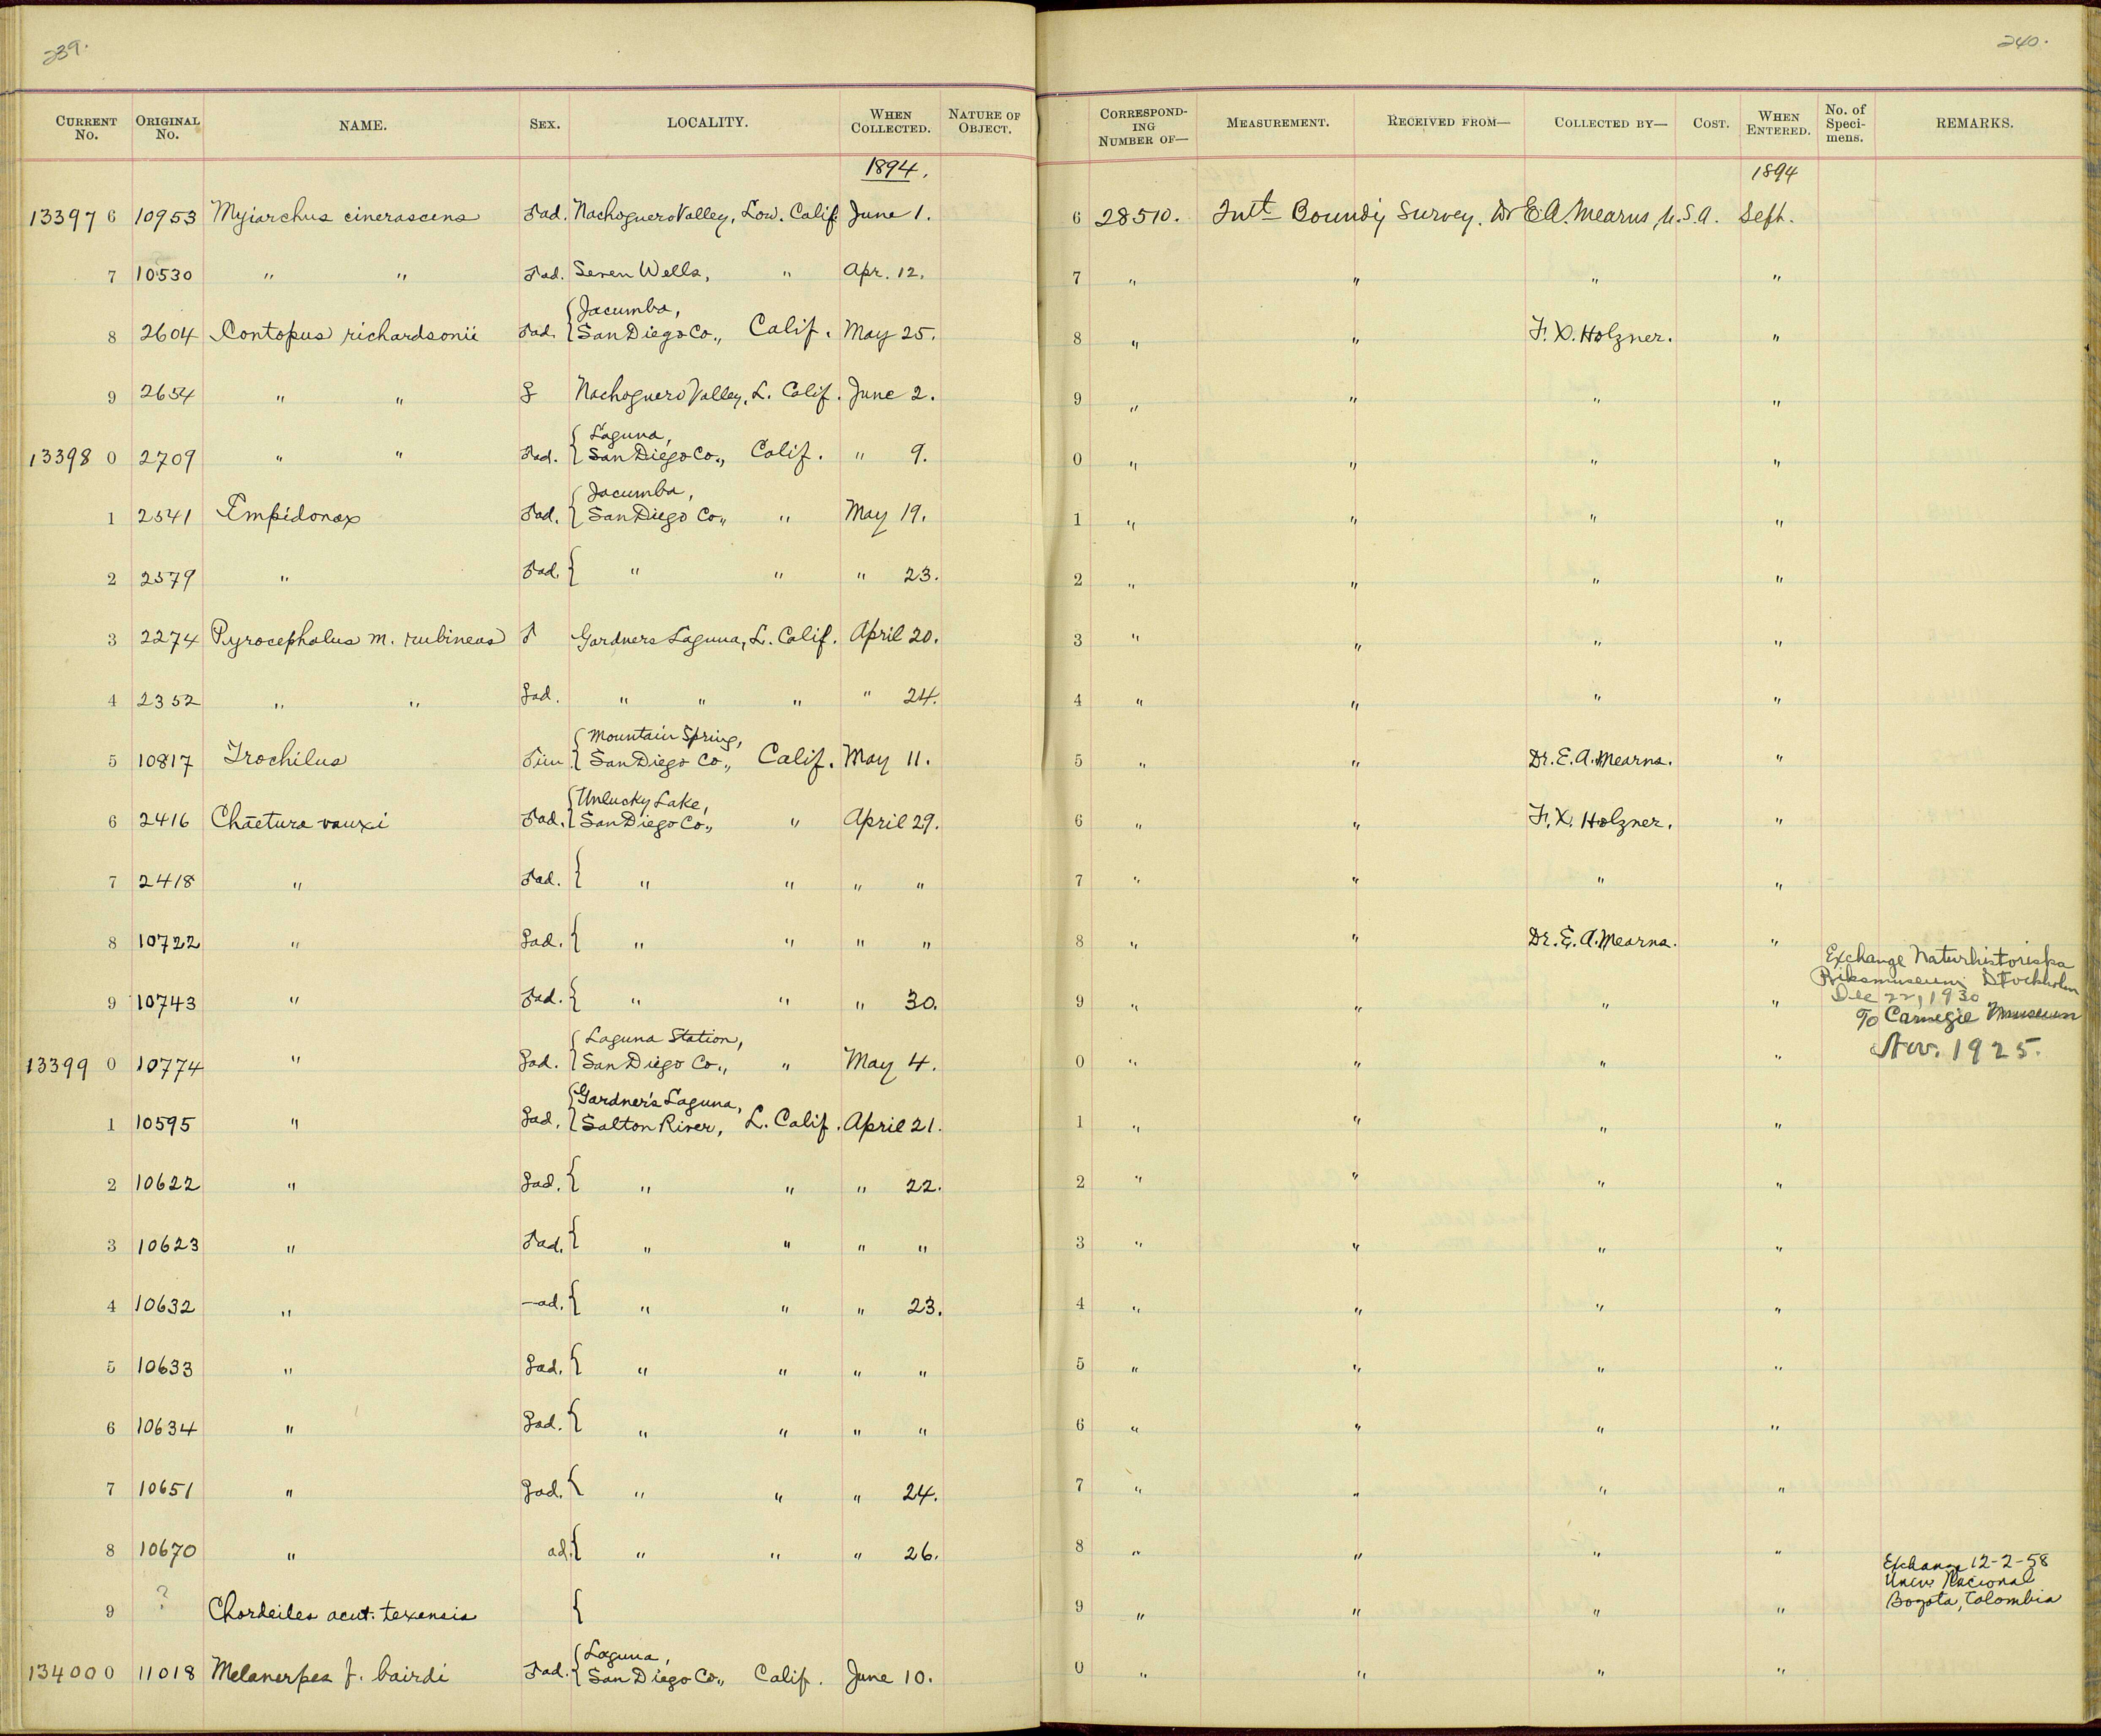 239.
CURRENT No. ORIGINAL No. NAME. SEX. LOCALITY. WHEN COLLECTED. NATURE OF OBJECT.
1894.
13397 6 10953 Myiarchus cinerascens ♂ad. Nachoguero Valley, Low. Calif. June 1.
7 10530 " " ♂ad. Seven Wells, " Apr. 12.
8 2604 Contopus richardsonii ♂ad. { Jacumba,
San Diego Co., Calif. May 25.
9 2654 " " ♀ Nachoguero Valley, L. Calif. June 2.
13398 0 2709 " " ♂ad. { Laguna,
San Diego Co., Calif. " 9.
1 2541 Empidonax ♂ad. { Jacumba,
San Diego Co., " May 19.
2 2579 " ♂ad. { " " " 23.
3 2274 Pyrocephalus m. rubineus ♂ Gardners Laguna, L. Calif. April 20.
4 2352 " " ♀ad. " " " " 24.
5 10817 Trochilus ♂im. { Mountain Spring,
San Diego Co., Calif. May 11.
6 2416 Chaetura vauxi ♂ad. { Unlucky Lake,
San Diego Co., " April 29.
7 2418 " ♂ad. { " " " "
8 10722 " ♀ad. { " " " "
9 10743 " ♂ad. { " " " 30.
13399 0 10774 " ♀ad. { Laguna Station,
San Diego Co., " May 4.
1 10595 " ♀ad. { Gardner's Laguna,
Salton River, L. Calif. April 21.
2 10622 " ♀ad. { " " " 22.
3 10623 " ♂ad. { " " " "
4 10632 " —ad. { " " " 23.
5 10633 " ♀ad. { " " " "
6 10634 " ♀ad. { " " " "
7 10651 " ♀ad. { " " " 24.
8 10670 " ad. { " " " 26.
9 ? Chordeiles acut. texensis {
13400 0 11018 Melanerpes f. bairdi ♂ad. { Laguna,
San Diego Co., Calif. June 10.
240.
CORRESPONDING NUMBER OF— MEASUREMENT. RECEIVED FROM— COLLECTED BY— COST. WHEN ENTERED. No. of Specimens. REMARKS.
1894
6 28510. Int Bound'y Survey. Dr E.A. Mearns, U.S.A. Sept.
7 " " " "
8 " " F. X. Holzner. "
9 " " " "
0 " " " "
1 " " " "
2 " " " "
3 " " " "
4 " " " "
5 " " Dr. E. A. Mearns. "
6 " " F. X. Holzner. "
7 " " " "
8 " " Dr. E. A. Mearns. "
Exchange Naturhistoriska
Riksmuseum Stockholm
Dec 22, 1930
9 " " " "
To Carnegie Museum
Nov. 1925.
0 " " " "
1 " " " "
2 " " " "
3 " " " "
4 " " " "
5 " " " "
6 " " " "
7 " " " "
8 " " " "
Exchange 12-2-58
Univ. Nacional
Bogota, Colombia
9 " " " "
0 " " " "